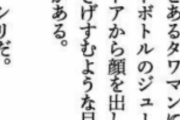 とあるタワマンに
ボトルのジュー
アから顔を出し
げすむような目
がある。
ンリだ。